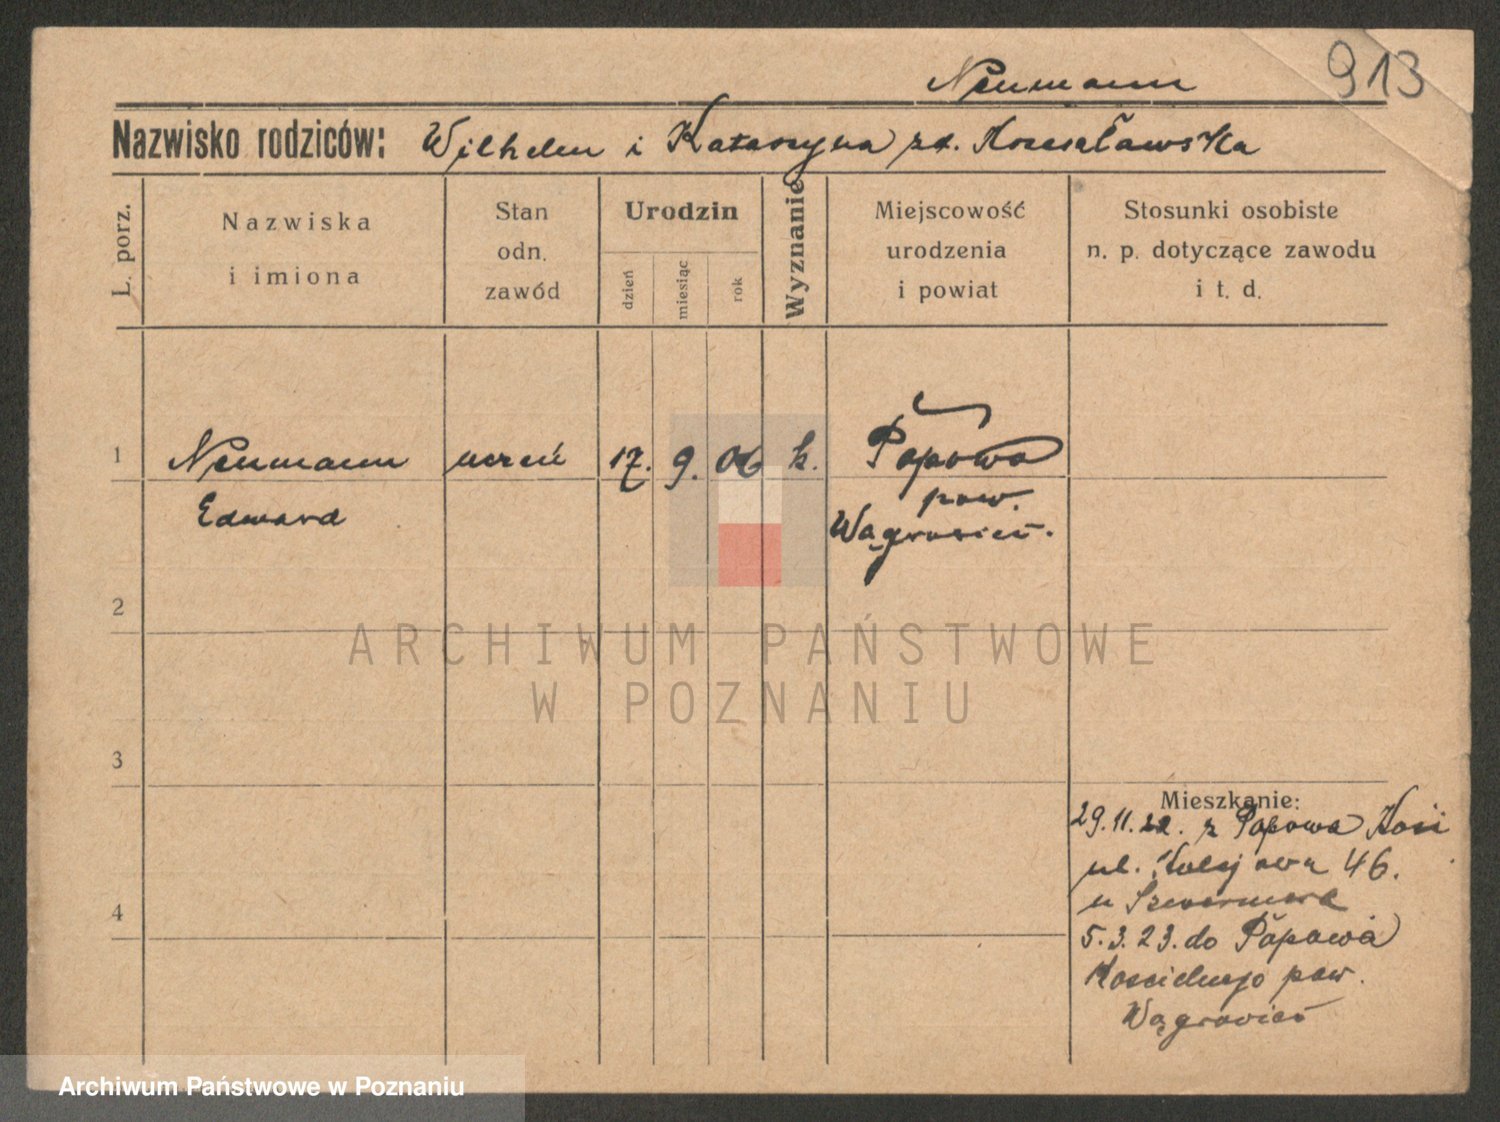 913
Neumann
Nazwisko rodziców: Wilhelm i Katarzyna zd.
L. porz.
Nazwiska
i imiona
Stan
odn.
zawód
Urodzin
dzień
miesiąc
rok
Wyznanie
Miejscowość
urodzenia
i powiat
Stosunki osobiste
n. p. dotyczące zawodu
i t. d.
1
Neumann
uczeń
17.
9.
06
k.
Popowo
Edward
pow.
Wągrowiec.
2
ARCHIWUM PAŃSTWOWE
W POZNANIU
3
Mieszkanie:
29.11.22. z Popowa Kość
ul. Kolejowa 46.
u
4
5.3.23. do Popowa
Kościelnego pow.
Wągrowiec
Archiwum Państwowe w Poznaniu